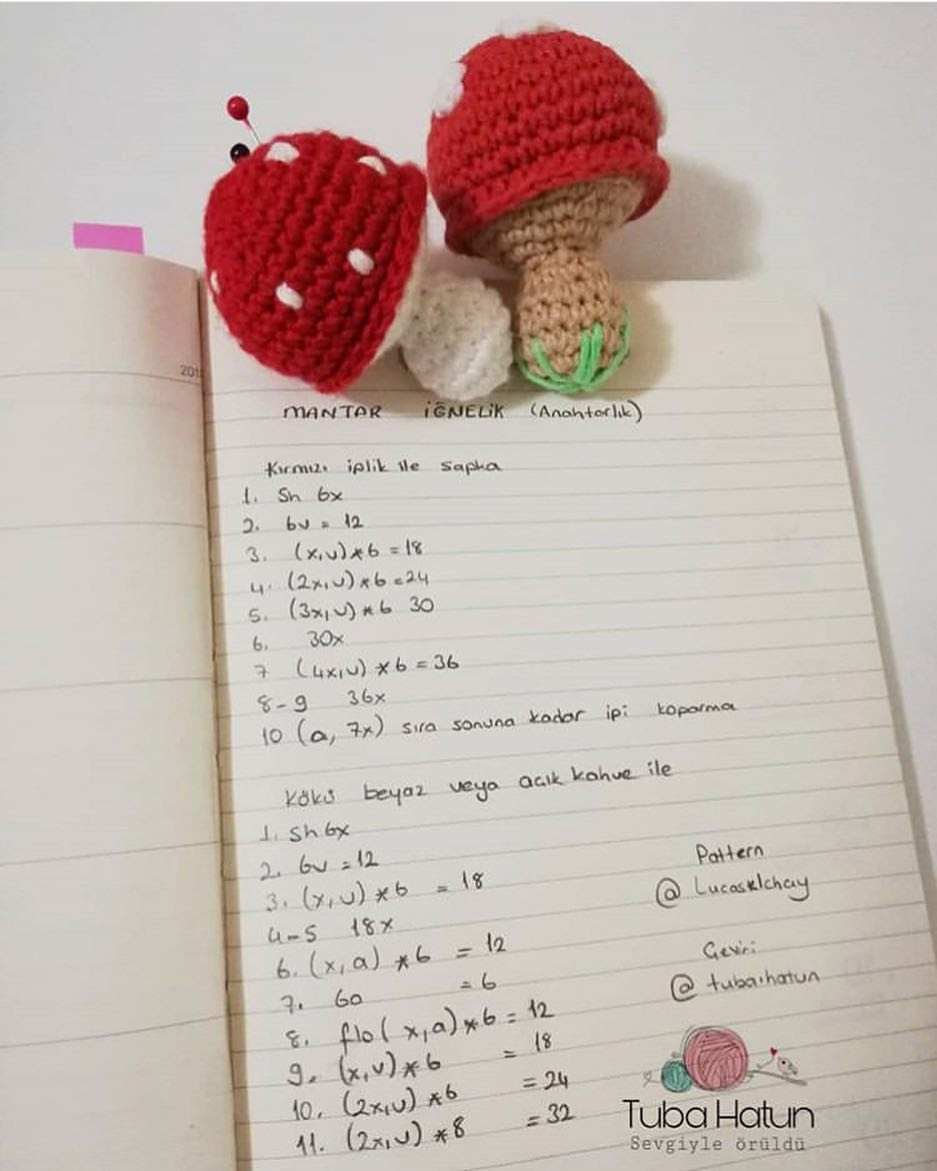 201
MANTAR İĞNELİK (Anahtarlık)
Kırmızı iplik ile şapka
1. Sh 6x
2. 6v = 12
3. (x,v)*6 = 18
4. (2x,v)*6 = 24
5. (3x,v)*6 30
6. 30x
7 (4x,v)*6 = 36
8-9 36x
10 (a, 7x) sıra sonuna kadar ipi koparma
Kökü beyaz veya açık kahve ile
1. Sh 6x
2. 6v = 12
3. (x,v)*6 = 18
4-5 18x
6. (x,a)*6 = 12
7. 6a = 6
8. flo (x,a)*6 = 12
9. (x,v)*6 = 18
10. (2x,v)*6 = 24
11. (2x,v)*8 = 32
Pattern
@Lucasklchay
Çeviri
@tuba.hatun
Tuba Hatun
Sevgiyle örüldü